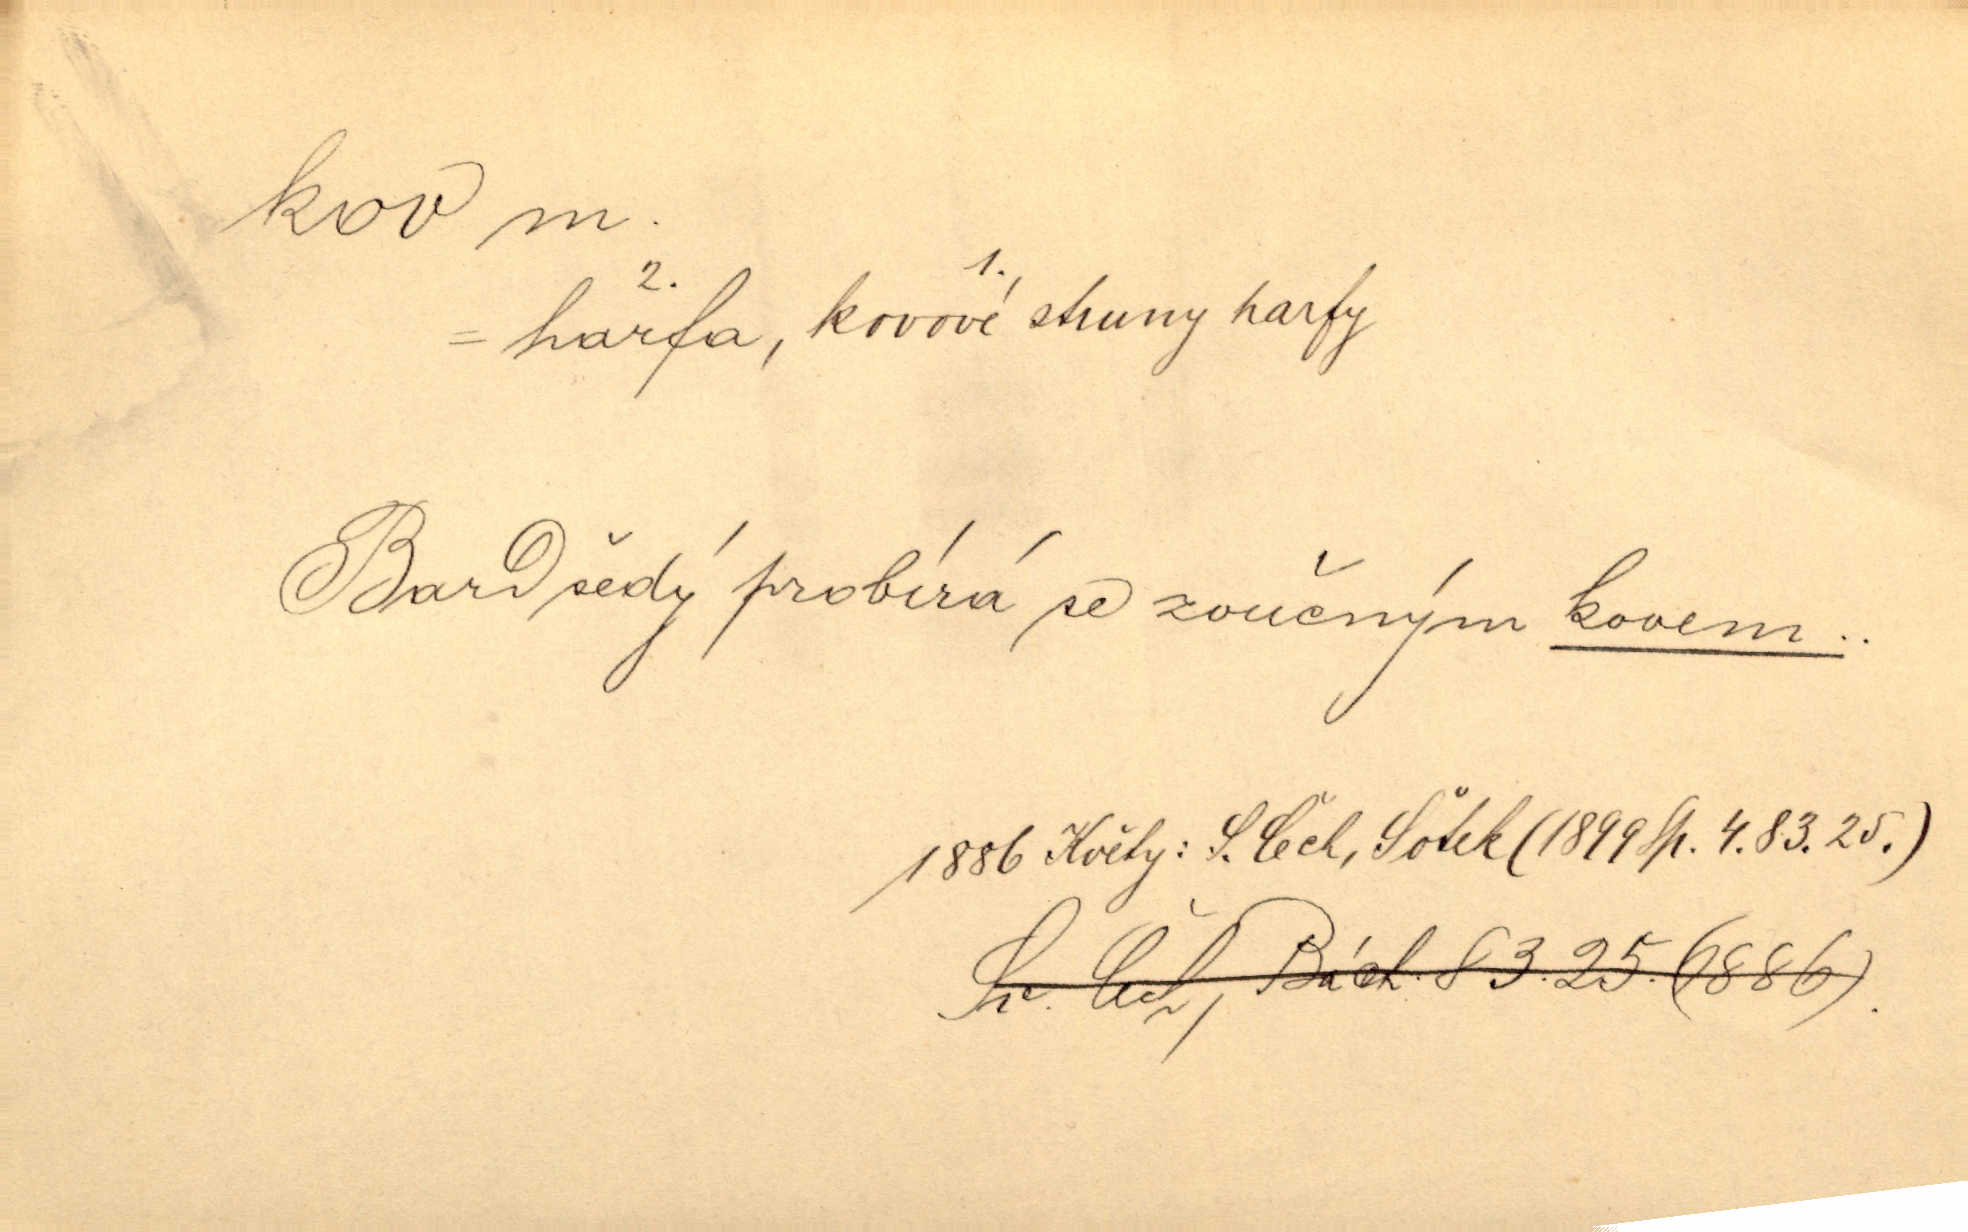 kov m.
2. 1.
= harfa, kovové struny harfy
Bard šedý probírá se zvučným kovem ..
1886 Květy: S. Čech, Šotek (1899 Sp. 4. 83. 25.)
Sv. Čech, Bách. 83. 25. (1886).